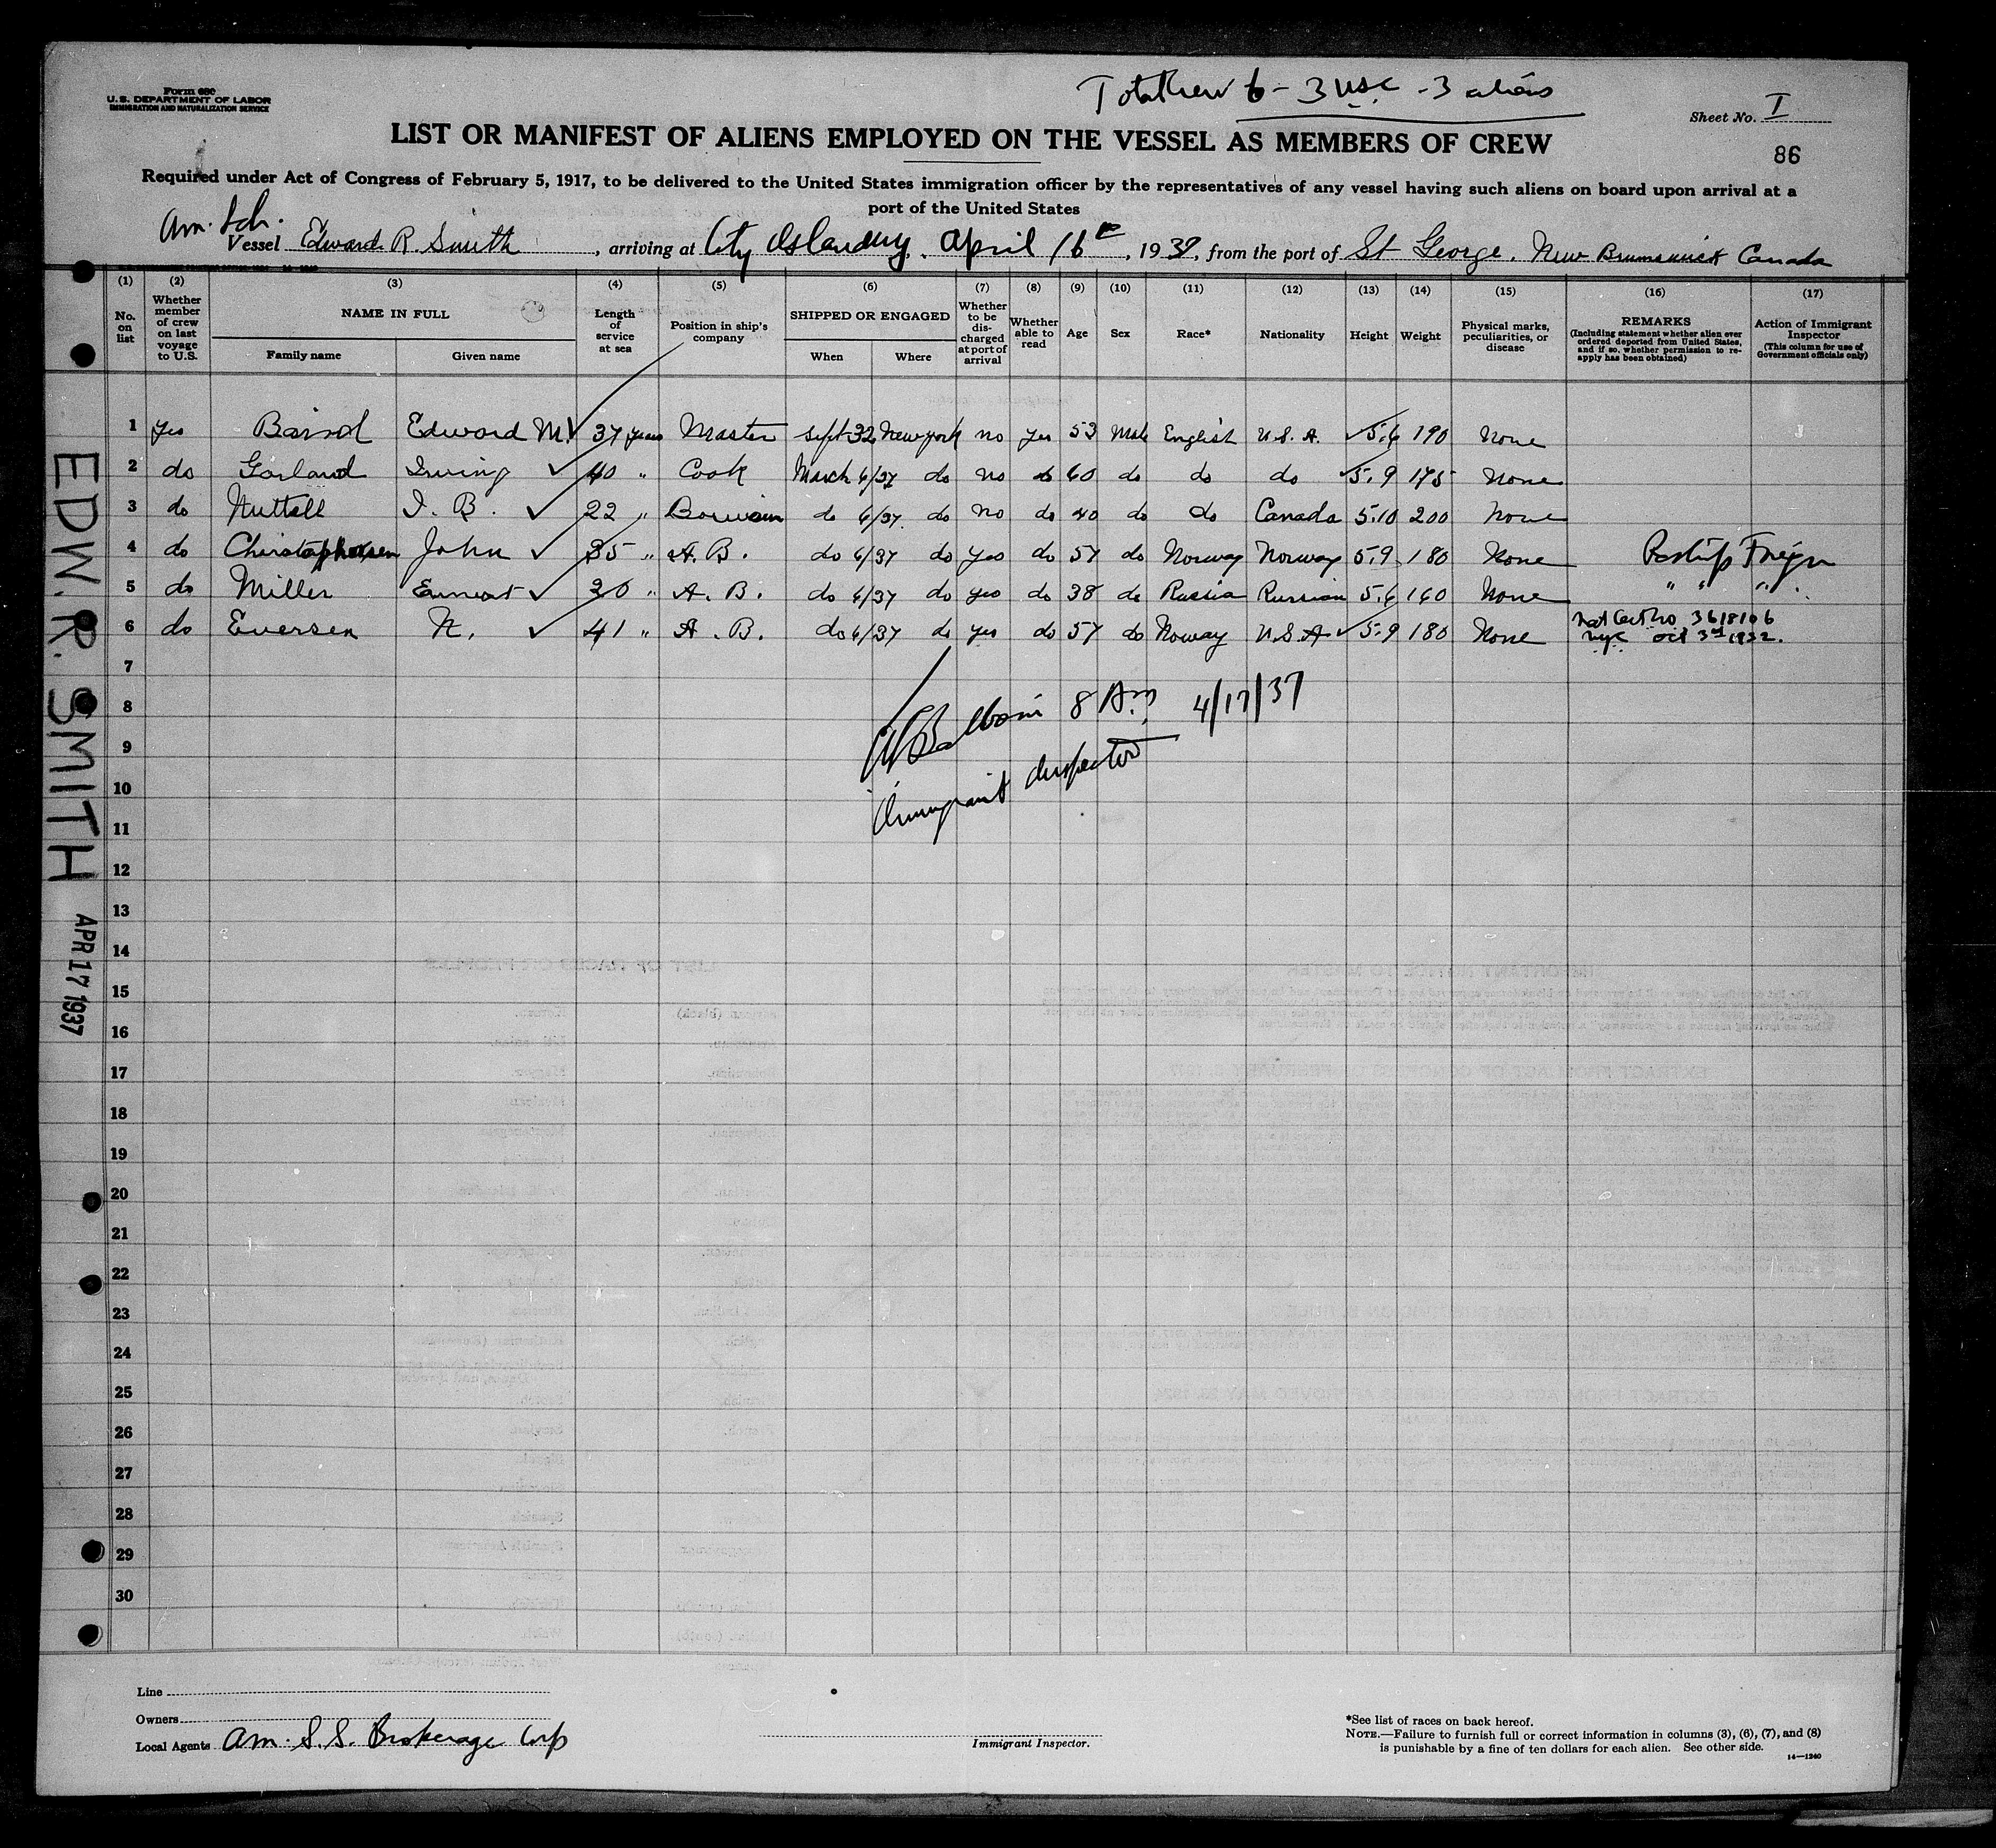 Form 680
U.S. DEPARTMENT OF LABOR
IMMIGRATION AND NATURALIZATION SERVICE
Total Crew 6 - 3 USC - 3 aliens
Sheet No. I
86
LIST OR MANIFEST OF ALIENS EMPLOYED ON THE VESSEL AS MEMBERS OF CREW
Required under Act of Congress of February 5, 1917, to be delivered to the United States immigration officer by the representatives of any vessel having such aliens on board upon arrival at a
port of the United States
Am. Sch.
Vessel Edward R. Smith, arriving at City Island NY, April 16th, 1937, from the port of St George. New Brunswick Canada
(1) (2) (3) (4) (5) (6) (7) (8) (9) (10) (11) (12) (13) (14) (15) (16) (17)
No. on list
Whether member of crew on last voyage to U.S.
NAME IN FULL
Family name
Given name
Length of service at sea
Position in ship's company
SHIPPED OR ENGAGED
When
Where
Whether to be discharged at port of arrival
Whether able to read
Age
Sex
Race*
Nationality
Height
Weight
Physical marks, peculiarities, or disease
REMARKS
(Including statement whether alien ever ordered deported from United States, and if so, whether permission to re-apply has been obtained)
Action of Immigrant Inspector
(This column for use of Government officials only)
1 yes Edward M. 37 years Master Sept 32 New York no yes 53 Male English U.S.A. 5.6 190 None
2 do Garland Irving 40 " Cook March 6/37 do no do 60 do do do 5.9 175 None
3 do Nuttall I. B. 22 " do 6/37 do no do 40 do do Canada 5.10 200 None
4 do Christophersen John 35 " A.B. do 6/37 do yes do 57 do Norway Norway 5.9 180 None
5 do Miller Earnest 20 " A.B. do 6/37 do yes do 38 do Russia Russian 5.6 160 None " " "
6 do Eversen N. 41 " A.B. do 6/37 do yes do 57 do Noway U.S.A 5.9 180 None Nat Cert No 3618106
NYC Oct 3rd 1932.
7
8
8 AM 4/17/37
9
Immigrant Inspector
10
11
12
13
14
15
16
17
18
19
20
21
22
23
24
25
26
27
28
29
30
EDW. R. SMITH APR 17 1937
Line
Owners
Local Agents Am. S.S. Brokerage Corp
Immigrant Inspector.
*See list of races on back hereof.
NOTE.—Failure to furnish full or correct information in columns (3), (6), (7), and (8)
is punishable by a fine of ten dollars for each alien. See other side.
14—1240